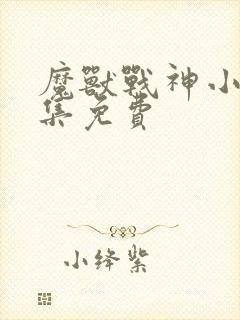 魔獸戰神小
集免費
小绛紫